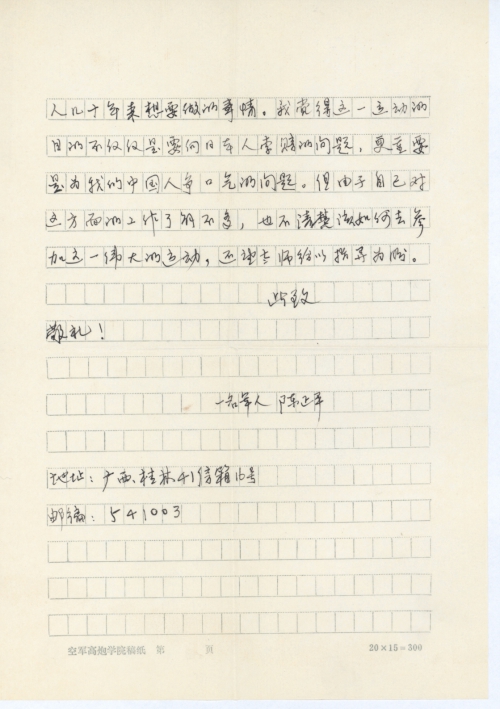 人几十年来想要做的事情。我觉得这一运动的
目的不仅仅是要向日本人索赔的问题，更重要
是为我们中国人争口气的问题。但由于自己对
这方面的工作了解不多，也不清楚该如何去参
加这一伟大的运动，还望老师给以指导为盼。
此致
敬礼！
一名军人 陈正平
地址：广西桂林41信箱16号
邮编：541003
空军高炮学院稿纸 第 页 20×15=300